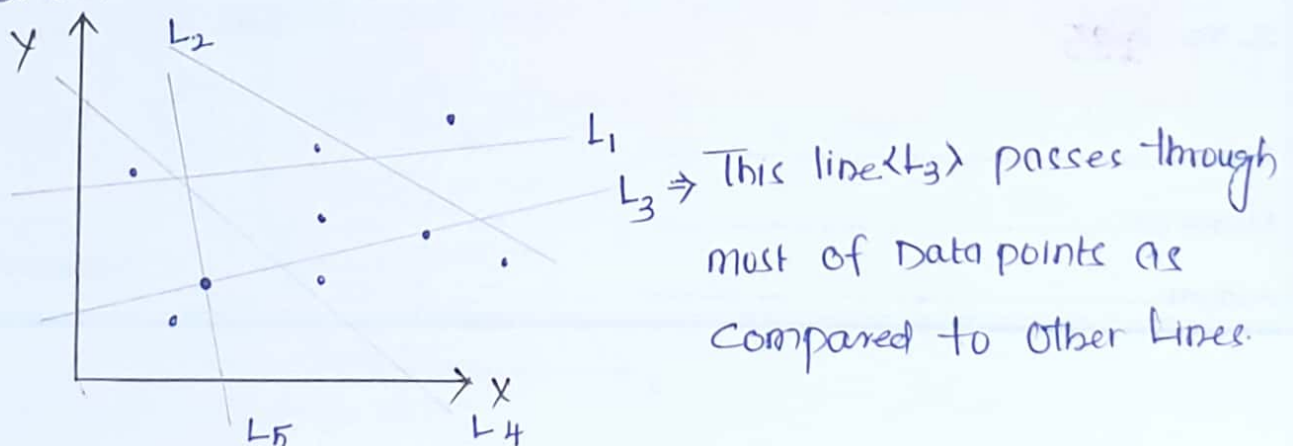 Y
L2
L1
L3 ⇒ This line <L3> passes through
most of Data points as
compared to other Lines.
X
L5
L4